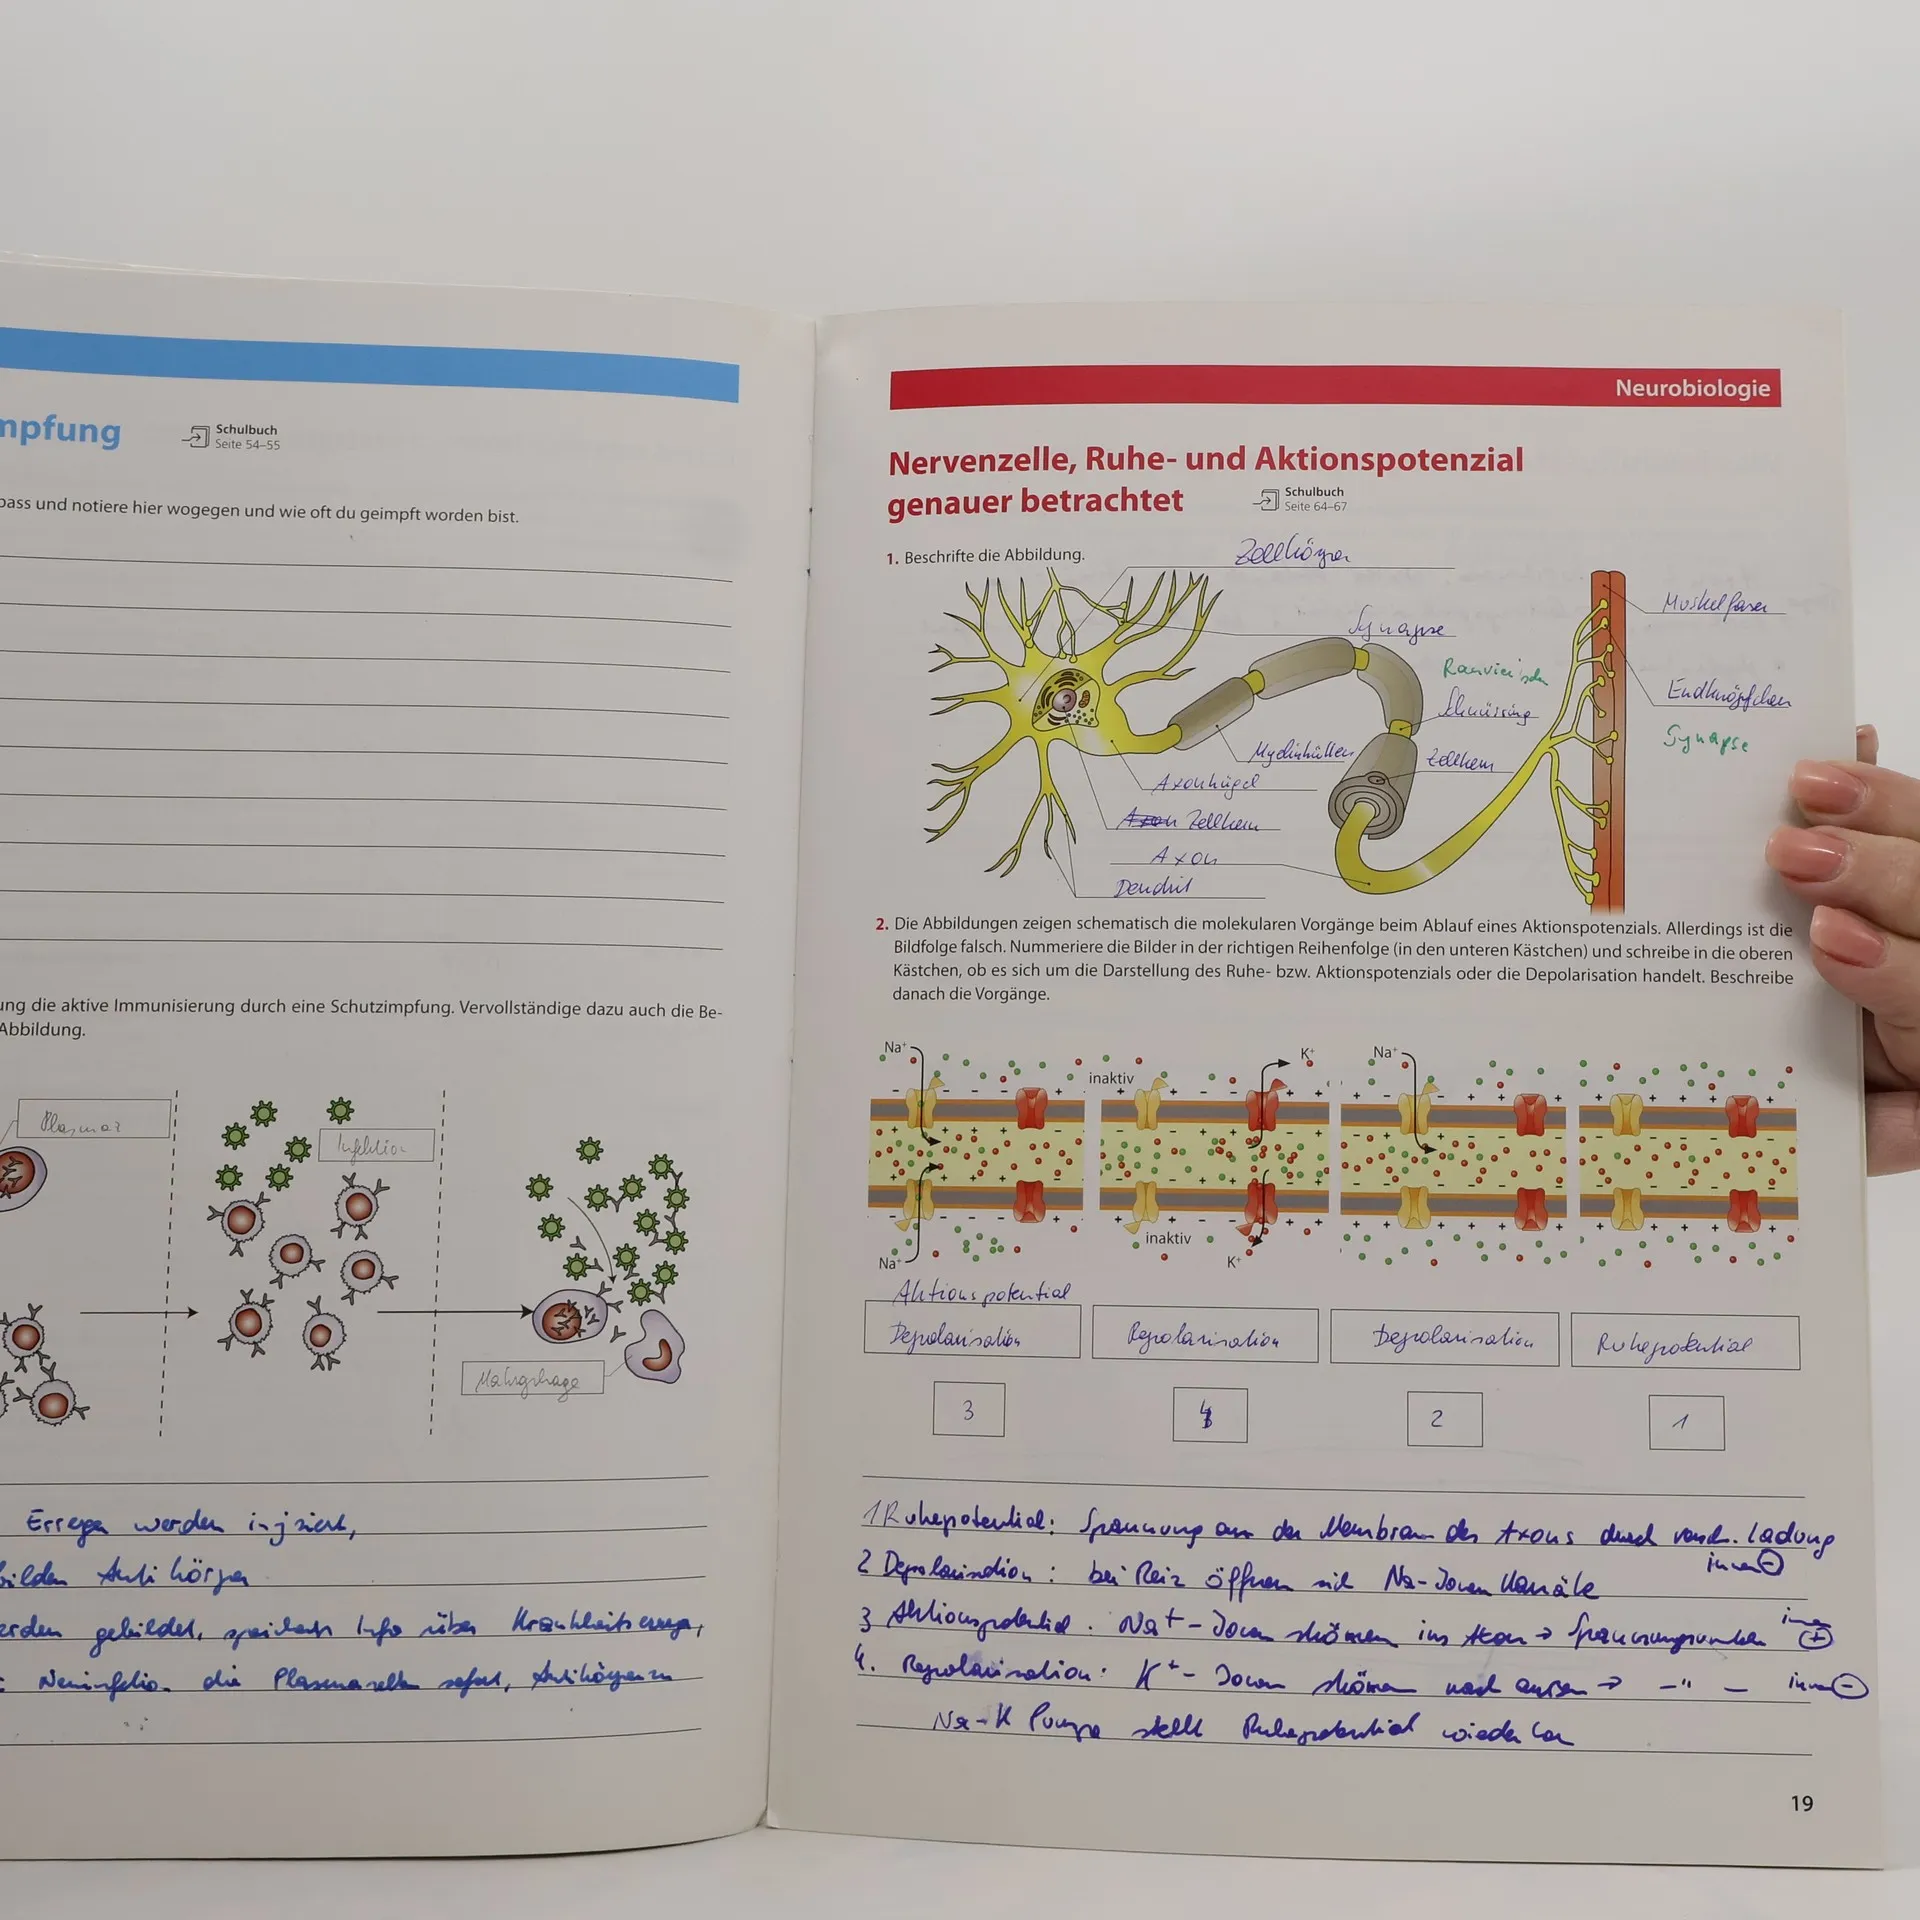 mpfung
Schulbuch
Seite 54–55
pass und notiere hier wogegen und wie oft du geimpft worden bist.
ung die aktive Immunisierung durch eine Schutzimpfung. Vervollständige dazu auch die Be-
Abbildung.
Plasmaz
Infektion
Makrophage
Erreger werden injziert,
bilden Antikörper
erden gebildet, speichern Info über Krankheitserreger,
: Neuinfektion die Plasmazellen sofort, Antikörper zu
Neurobiologie
Nervenzelle, Ruhe- und Aktionspotenzial
genauer betrachtet
Schulbuch
Seite 64–67
1. Beschrifte die Abbildung.
Zellkörper
Synapse
Muskelfaser
Ranvierischer
Schnürring
Endknöpfchen
Synapse
Myelinhüllen
Zellkern
Axonhügel
Axon Zellkern
Axon
Dendrit
2. Die Abbildungen zeigen schematisch die molekularen Vorgänge beim Ablauf eines Aktionspotenzials. Allerdings ist die
Bildfolge falsch. Nummeriere die Bilder in der richtigen Reihenfolge (in den unteren Kästchen) und schreibe in die oberen
Kästchen, ob es sich um die Darstellung des Ruhe- bzw. Aktionspotenzials oder die Depolarisation handelt. Beschreibe
danach die Vorgänge.
Na⁺ K⁺ Na⁺
inaktiv
inaktiv
Na⁺ K⁺
Aktionspotential
Depolarisation Repolarisation Depolarisation Ruhepotential
3 4 2 1
1 Ruhepotential: Spannung an der Membran des Axons durch versch. Ladung
innen ⊖
2 Depolarisation: bei Reiz öffnen sich Na-Ionen Kanäle
3 Aktionspotential: Na⁺-Ionen strömen ins Axon → Spannungsumkehr innen ⊕
4. Repolarisation: K⁺-Ionen strömen nach aussen → –"– innen ⊖
Na-K Pumpe stellt Ruhepotential wieder her
19